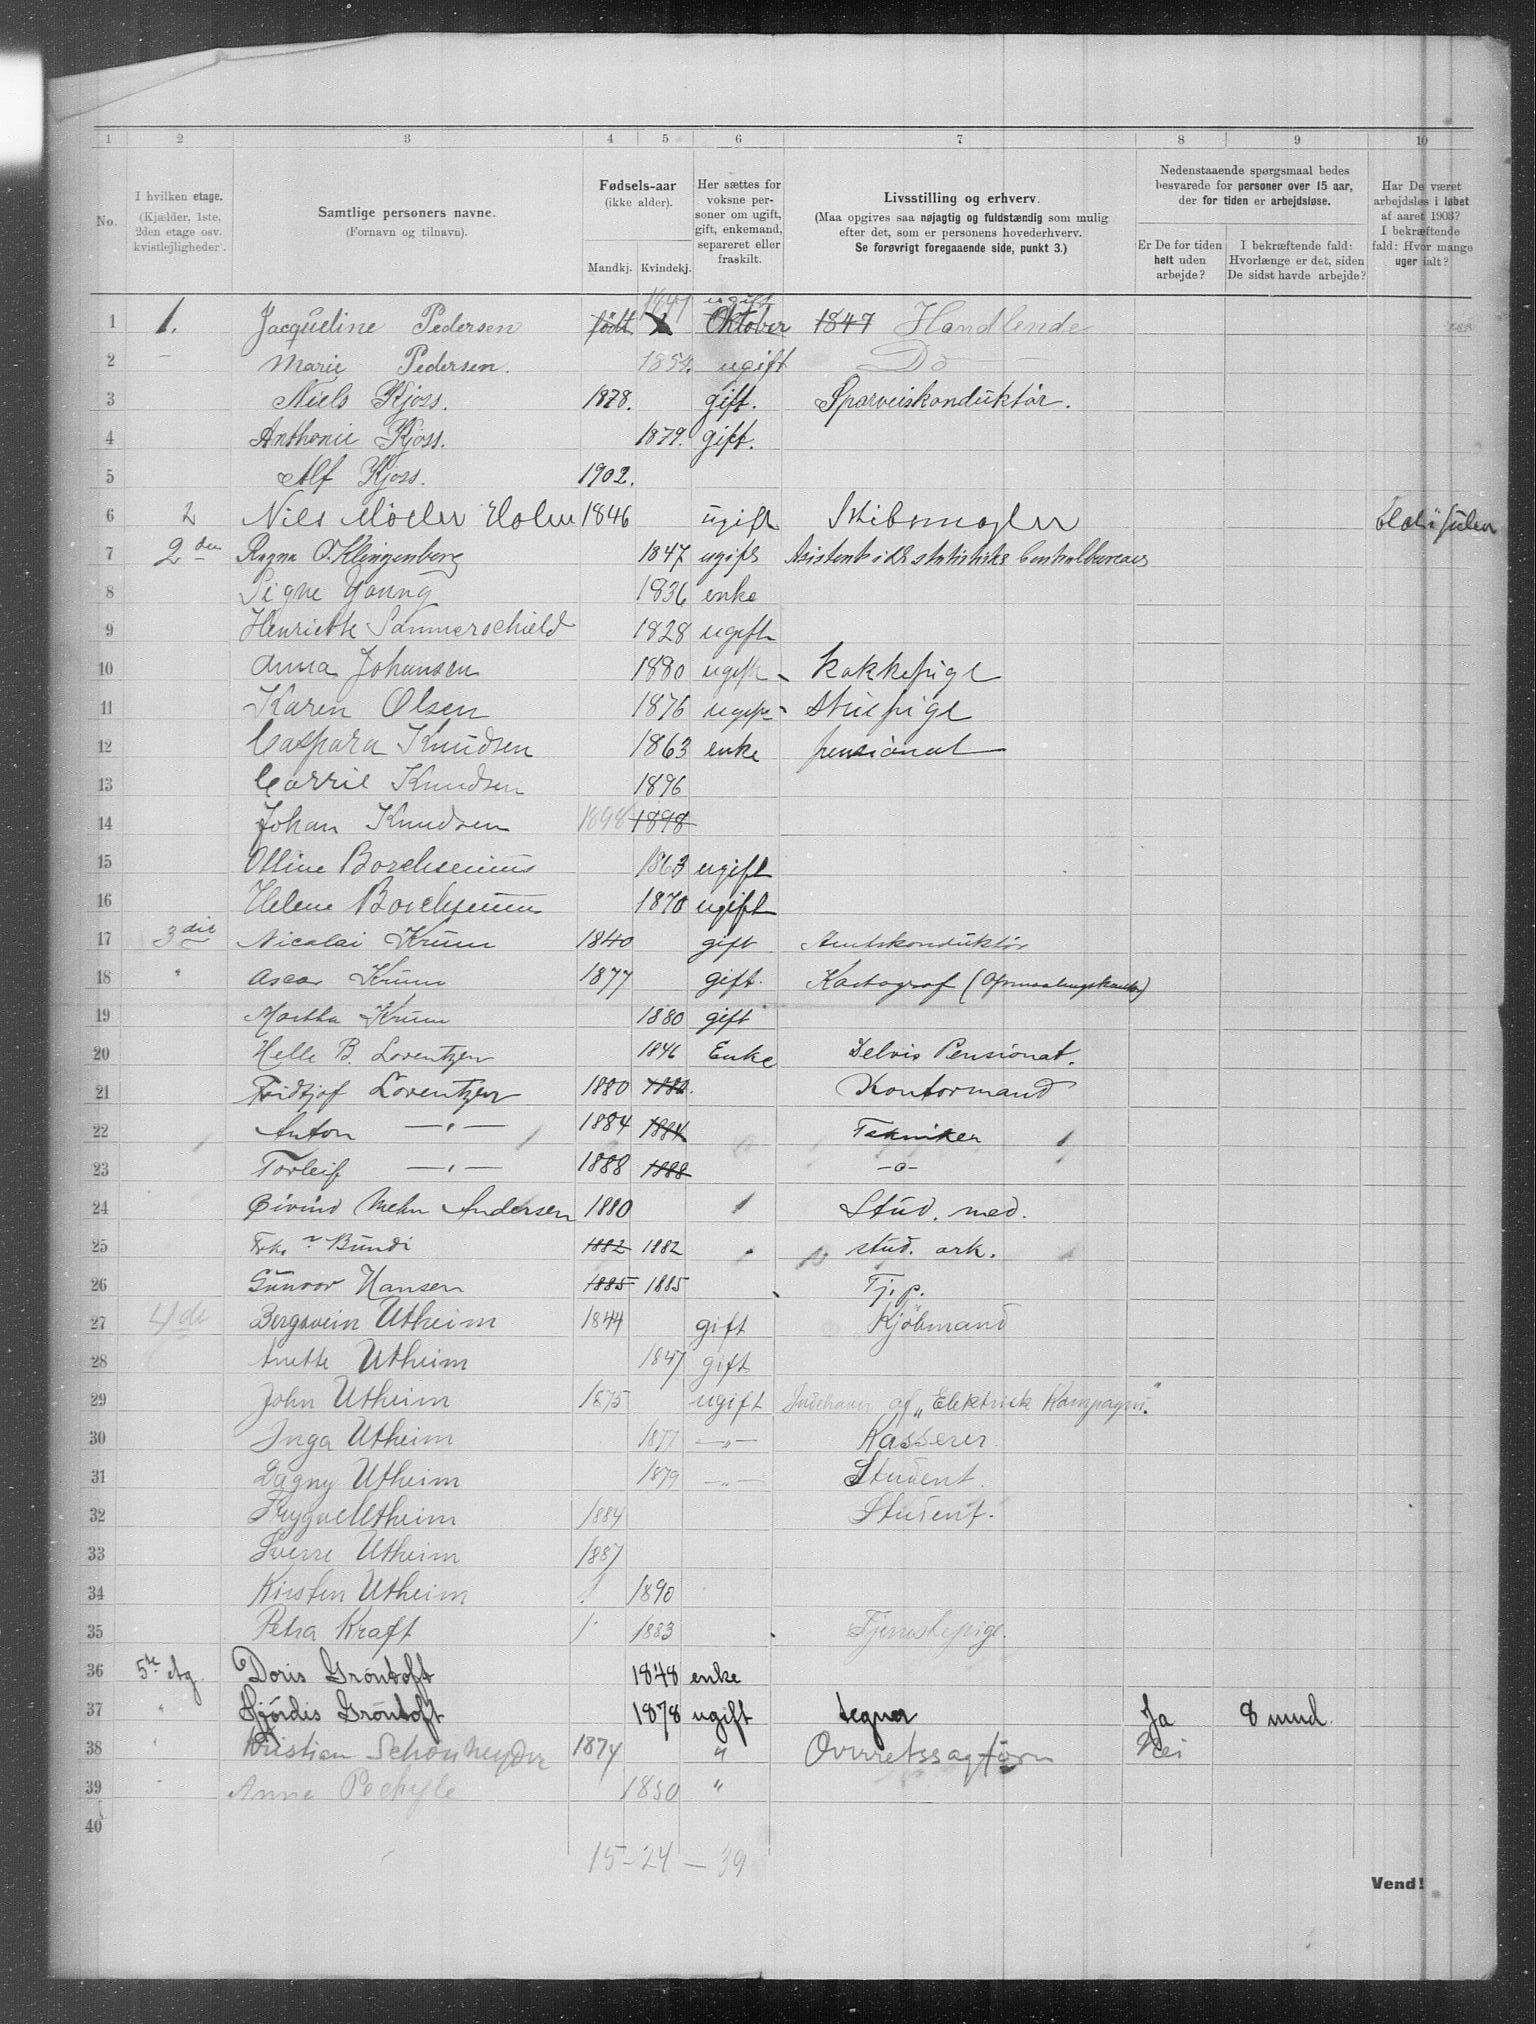 1 2 3 4 5 6 7 8 9 10
No.
I hvilken etage.
(Kjælder, 1ste, 2den etage osv. kvistlejligheder).
Samtlige personers navne.
(Fornavn og tilnavn).
Fødsels-aar
(ikke alder).
Mandkj. Kvindekj.
Her sættes for voksne personer om ugift, gift, enkemand, separeret eller fraskilt.
Livsstilling og erhverv.
(Maa opgives saa nøjagtig og fuldstændig som mulig efter det, som er personens hovederhverv. Se forøvrigt foregaaende side, punkt 3.)
Nedenstaaende spørgsmaal bedes besvarede for personer over 15 aar, der for tiden er arbejdsløse.
Er De for tiden helt uden arbejde?
I bekræftende fald: Hvorlænge er det, siden De sidst havde arbejde?
Har De været arbejdsløs i løbet af aaret 1903? I bekræftende fald: Hvor mange uger ialt?
1847 ugift
1 1. Jacqueline Pedersen født Oktober 1847 Handlende
2 — Marie Pedersen. 1854. ugift Do
3 Niels Kjoss. 1878. gift. Sporveiskonduktør.
4 Anthonie Kjoss. 1879. gift.
5 Alf Kjoss. 1902.
6 2 Nils Møller Holm 1846 ugift Skibsmægler
7 2den Ragna O. Klingenberg 1847 ugift Assistent i det statistiske Centralbureau
8 Signe Young 1836 enke
9 Henriette Sommerschield 1828 ugift
10 Anna Johansen 1880 ugift Kokkepige
11 Karen Olsen 1876 ugift Stuepige
12 Caspara Knudsen 1863 enke pensionat
13 Carrie Knudsen 1896
14 Johan Knudsen 1898 1898
15 Olline Borchsenius 1863 ugift
16 Helene Borchsenius 1870 ugift
17 3die Nicolai Krum 1840 gift Amtskonduktør
18 " Oscar Krum 1877 gift. Kartograf (Opmaalingskontor)
19 Martha Krum 1880 gift
20 Helle B. Lorentzen 1846 Enke Delvis Pensionat.
21 Fridtjof Lorentzen 1880 1880. Kontormand
22 Anton —"— 1884 1884 Tekniker
23 Torleif —"— 1888 1888 -o-
24 Øivind Mehn Andersen 1880 Stud. med.
25 Frk. Bundi 1882 1882 stud. ark.
26 Gunvor Hansen 1885 1885 Tj. p.
27 4de Bergsvein Utheim 1844 gift Kjøbmand
28 Anette Utheim 1847 gift
29 John Utheim 1875 ugift Indehaver af „Elektrisk Kompagni."
30 Inga Utheim 1877 —"— Kasserer
31 Dagny Utheim 1879 —"— Student.
32 Trygve Utheim 1884 Student.
33 Sverre Utheim 1887
34 Kirsten Utheim 1890
35 Petra Kraft 1883 Tjenestepige.
36 5te etg. Doris Grøntoft 1848 enke
37 " Hjørdis Grøntoft 1878 ugift tegner Ja 8 mnd.
38 " Kristian Schønheyder 1874 " Overretssagfører Nei
39 Anna 1850 "
40
15-24 — 39
Vend!